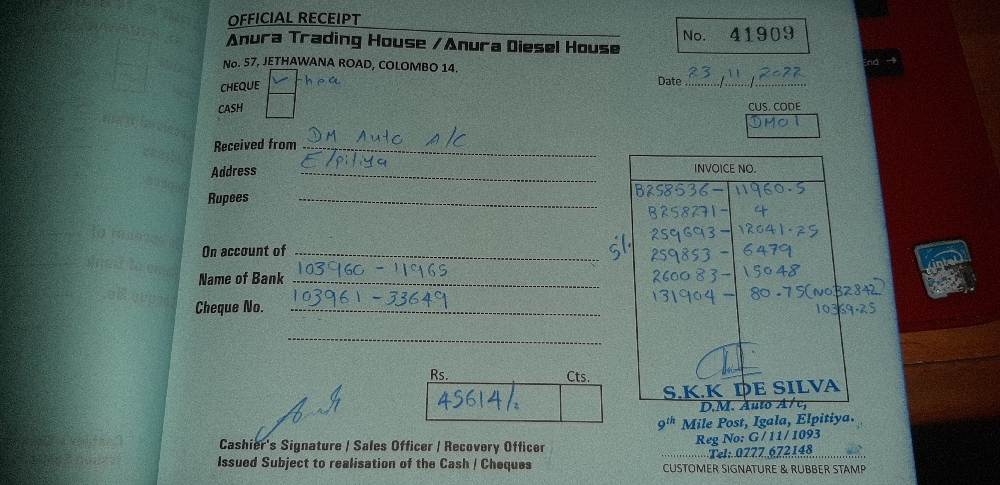 OFFICIAL RECEIPT
Anura Trading House / Anura Diesel House
No. 57, JETHAWANA ROAD, COLOMBO 14.
No. 41909
CHEQUE ✓
CASH
Date 23/11/2022
CUS. CODE
DM01
Received from DM Auto A/C
Address E/piliya
Rupees
On account of
Name of Bank 103960 - 11965
Cheque No. 103961 - 33649
INVOICE NO.
B258536 - 11960.5
B258271 - 4
259693 - 12041.25
5%
259853 - 6479
260083 - 15048
131904 - 80.75(NOB2842)
10369.25
Rs. Cts.
45614/.
Cashier's Signature / Sales Officer / Recovery Officer
Issued Subject to realisation of the Cash / Cheques
S.K.K DE SILVA
D.M. Auto A/c,
9th Mile Post, Igala, Elpitiya.
Reg No: G/11/1093
Tel: 0777 672148
CUSTOMER SIGNATURE & RUBBER STAMP
End →
intel